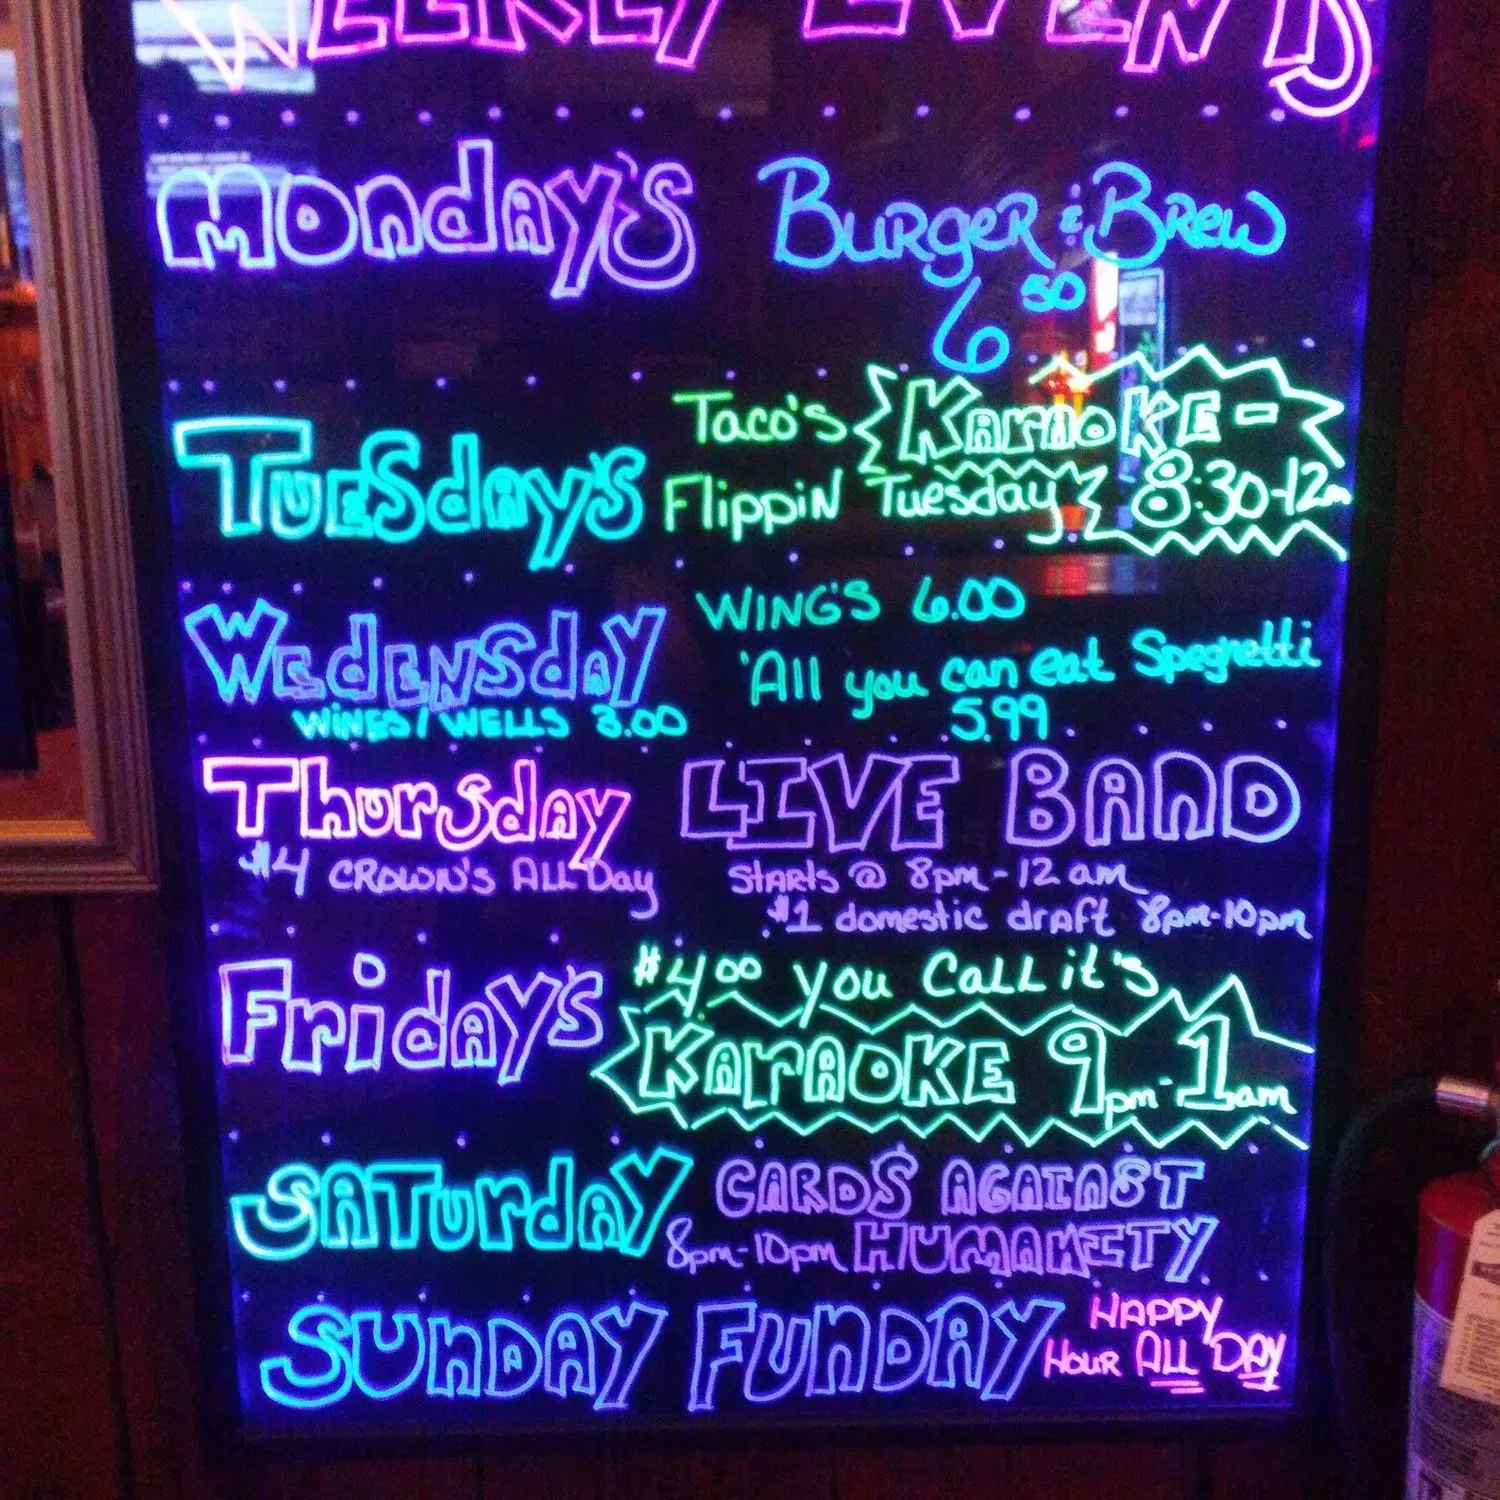 WEEKLY EVENTS
Monday's Burger & Brew
6 50
Tuesday's Taco's Karaoke-
Flippin Tuesday 8:30-12am
Wedensday Wing's 6.00
Wines/Wells 3.00 'All you can eat Spegnetti
5.99
Thursday LIVE BAND
$4 Crown's All Day Starts @ 8pm-12am
$1 domestic draft 8pm-10pm
Friday's $4.00 you Call it's
Karaoke 9pm-1am
Saturday Cards Against
8pm-10pm Humanity
Sunday Funday Happy
Hour All Day